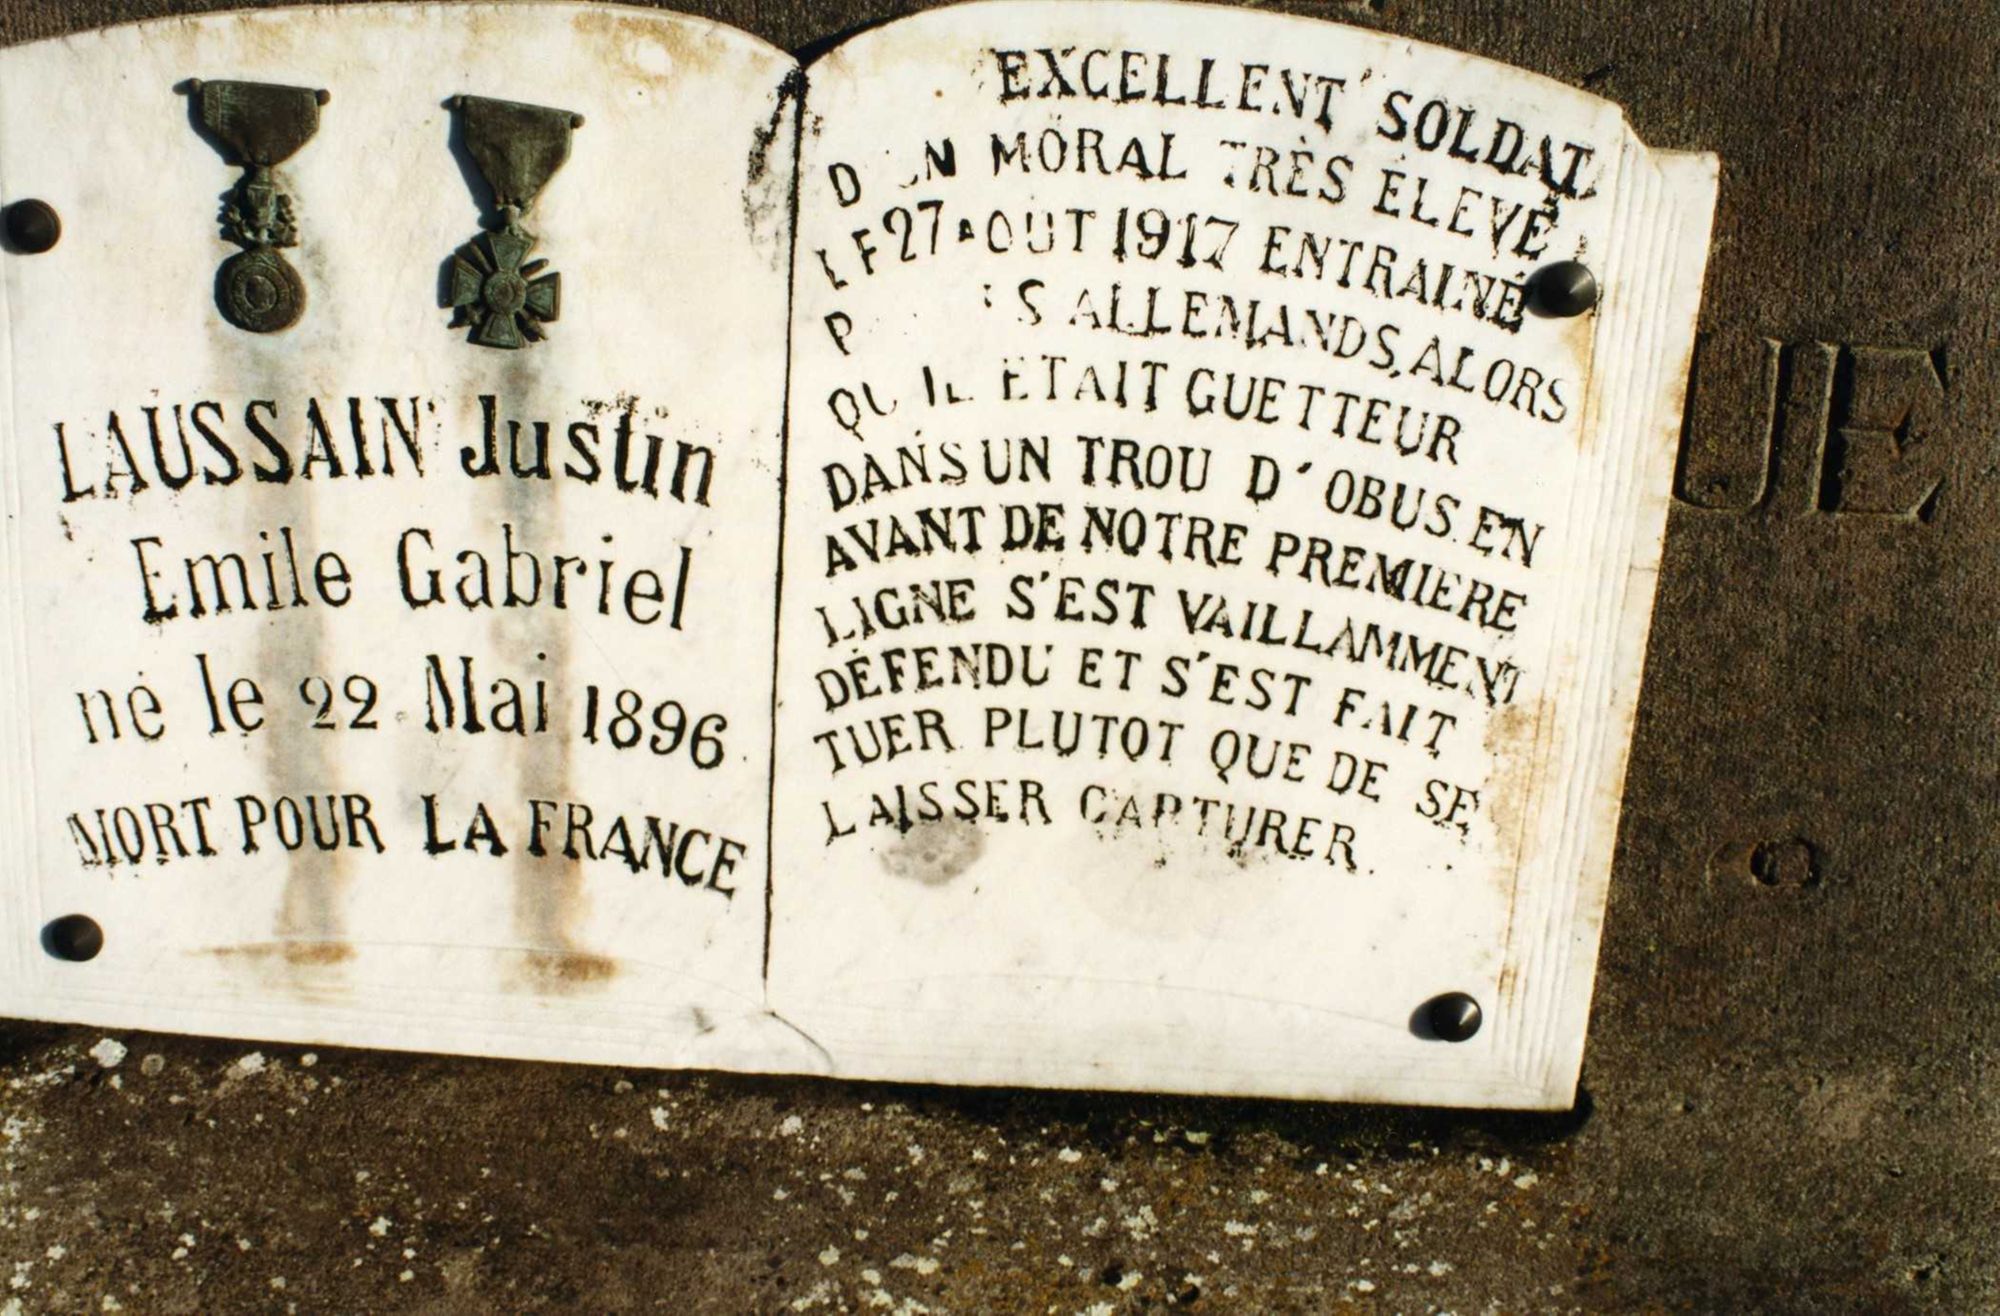 LAUSSAIN Justin
Emile Gabriel
né le 22 Mai 1896
MORT POUR LA FRANCE
EXCELLENT SOLDAT
D'UN MORAL TRÈS ÉLEVÉ
LE 27 AOUT 1917 ENTRAINÉ
ALLEMANDS, ALORS
QU'IL ETAIT GUETTEUR
DANS UN TROU D'OBUS EN
AVANT DE NOTRE PREMIERE
LIGNE S'EST VAILLAMMENT
DÉFENDU ET S'EST FAIT
TUER PLUTOT QUE DE SE
LAISSER CAPTURER.
UE